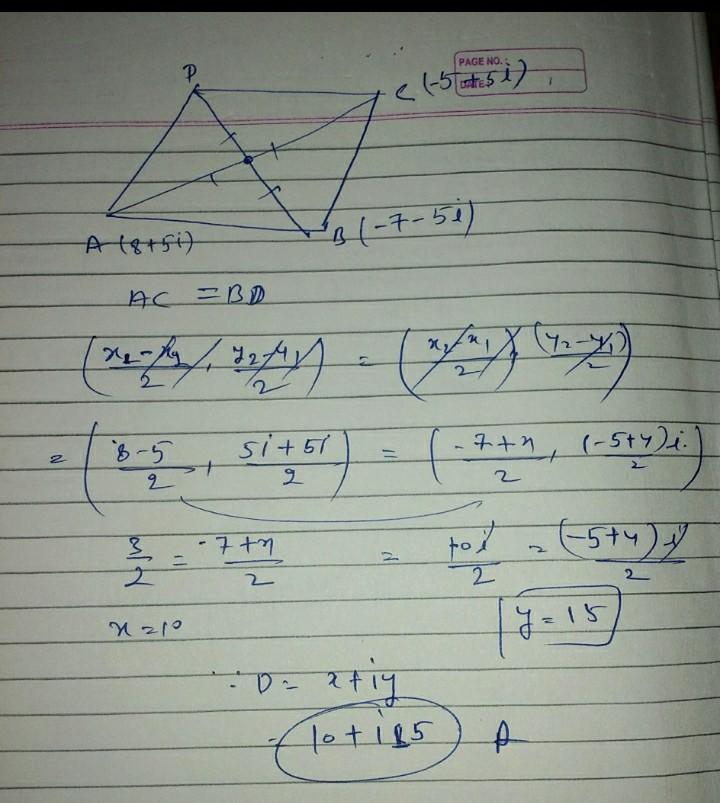 PAGE NO.:
DATE:
D
C (-5+5i)
A (8+5i)
B (-7-5i)
AC = BD
(x₂-x₁/2, y₂-y₁/2) = (x₂-x₁/2), (y₂-y₁)/2)
= (8-5/2, 5i+5i/2) = (-7+x/2, (-5+y)i/2)
3/2 = -7+x/2 = 10i/2 = (-5+y)i/2
x=10
y=15
∴ D = x+iy
= 10+i15 A